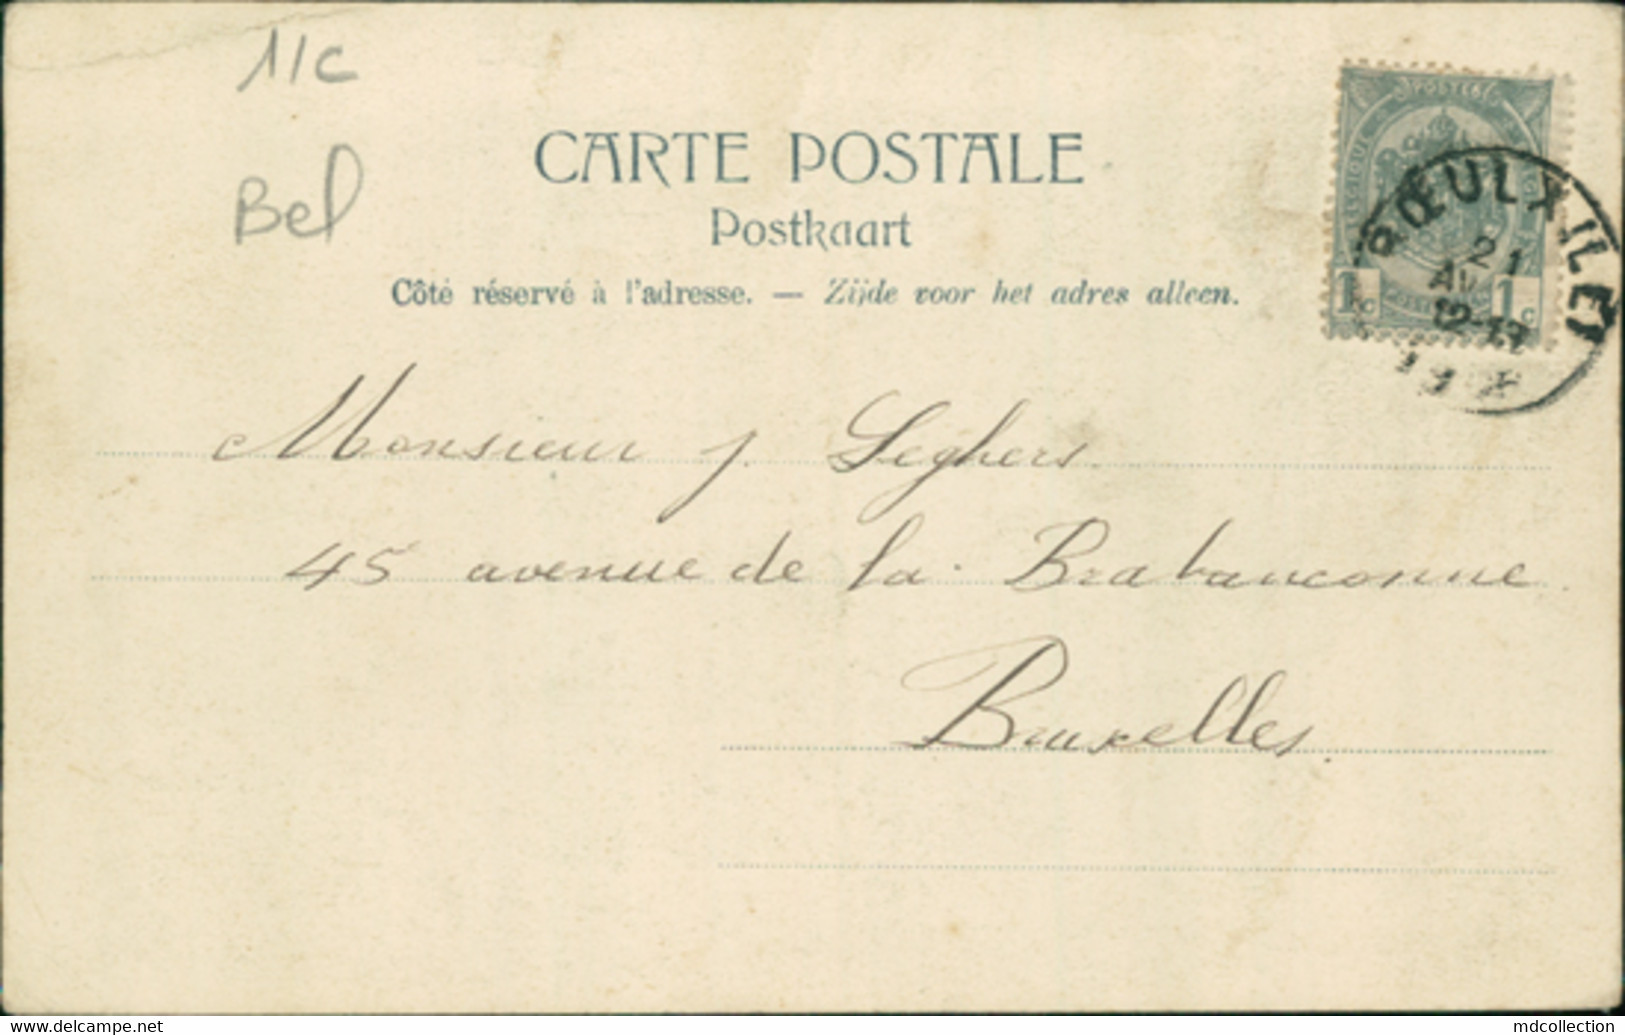 1/c
Bel
CARTE POSTALE
Postkaart
Côté réservé à l'adresse. — Zijde voor het adres alleen.
POSTES
BELGIQUE
1c 1c
RŒULX (LE)
21
AV
12-
Monsieur J. Seghers
45 avenue de la Brabançonne
Bruxelles
www.delcampe.net
mdcollection